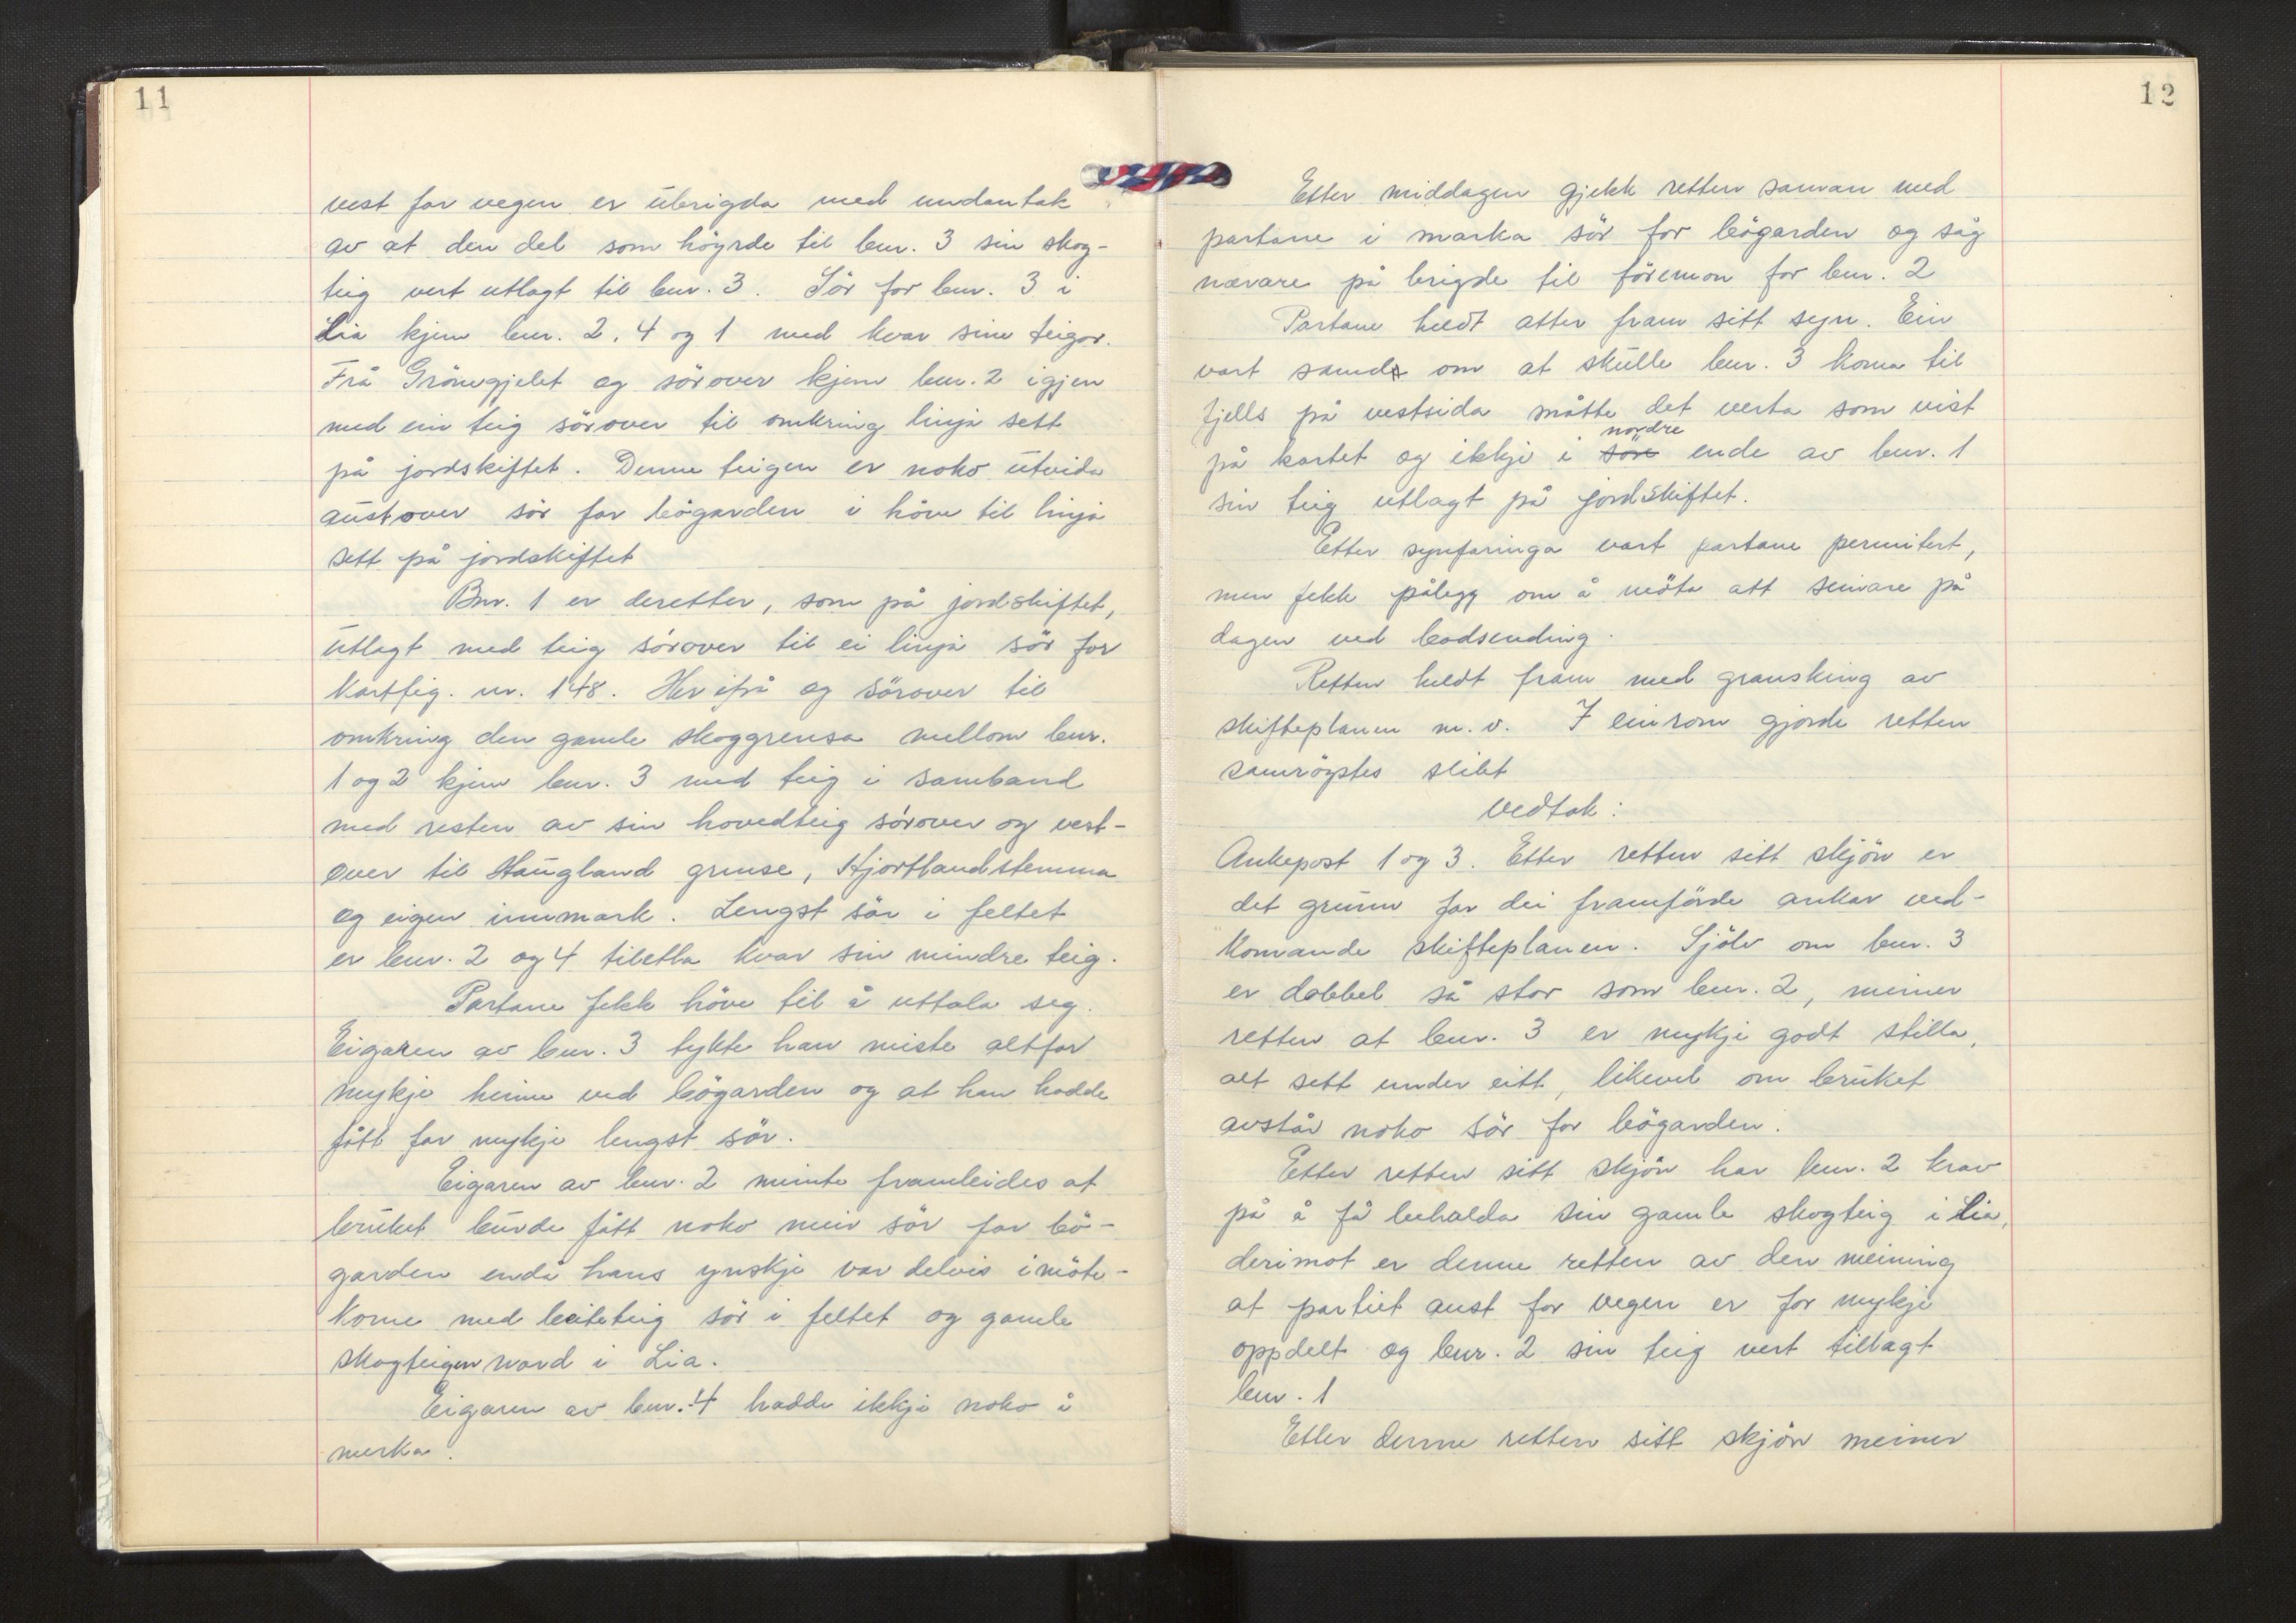 11
vest for vegen er ubrigda med undantak
av at den del som höyrde til bnr. 3 sin skog-
teig vert utlagt til bnr. 3. Sör for bnr. 3 i
Lia kjem bnr. 2, 4 og 1 med kvar sine teigar.
Frå Grönegjelet og sörover kjem bnr. 2 igjen
med ein teig sörover til omkring linja sett
på jordskiftet. Denne teigen er noko utvida
austover sör for bögarden i höve til linja
sett på jordskiftet
Bnr. 1 er deretter, som på jordskiftet,
utlagt med teig sörover til ei linja sör for
kartfig. nr. 148. Her ifrå og sörover til
omkring den gamle skoggrensa mellom bnr.
1 og 2 kjem bnr. 3 med teig i samband
med resten av sin hovedteig sörover og vest-
over til Haugland grense, Hjortlandstemma
og eigen innmark. Lengst sör i feltet
er bnr. 2 og 4 tiletla kvar sin mindre teig.
Partane fekk höve til å uttala seg.
Eigaren av bnr. 3 tykte han miste altfor
mykje heime ved bögarden og at han hadde
fått for mykje lengst sör.
Eigaren av bnr. 2 meinte framleides at
bruket burde fått noko meir sör for bö-
garden endå hans ynskje var delvis imöte-
kome med beiteteig sör i feltet og gamle
skogteigen nord i Lia.
Eigaren av bnr. 4 hadde ikkje noko å
merka.
12
Etter middagen gjekk retten saman med
partane i marka sör for bögarden og såg
nærare på brigde til föremon for bnr. 2
Partane heldt atter fram sitt syn. Ein
vart samde om at skulle bnr. 3 koma til
fjells på vestsida måtte det verta som vist
på kartet og ikkje i söre nordre ende av bnr. 1
sin teig utlagt på jordskiftet.
Etter synfaringa vart partane permitert,
men fekk pålegg om å möta att seinare på
dagen ved bodsending.
Retten heldt fram med gransking av
skifteplanen m. v. I einrom gjorde retten
samröystes slikt
vedtak:
Ankepost 1 og 3. Etter retten sitt skjön er
det grunn for dei framförde ankar ved-
komande skifteplanen. Sjölv om bnr. 3
er dobbel så stor som bnr. 2, meiner
retten at bnr. 3 er mykje godt stilla,
alt sett under eitt, likevel om bruket
avstår noko sör for bögarden.
Etter retten sitt skjön har bnr. 2 krav
på å få behalda sin gamle skogteig i Lia,
derimot er denne retten av den meining
at partiet aust for vegen er for mykje
oppdelt og bnr. 2 sin teig vert tillagt
bnr. 1
Etter denne retten sitt skjön meiner